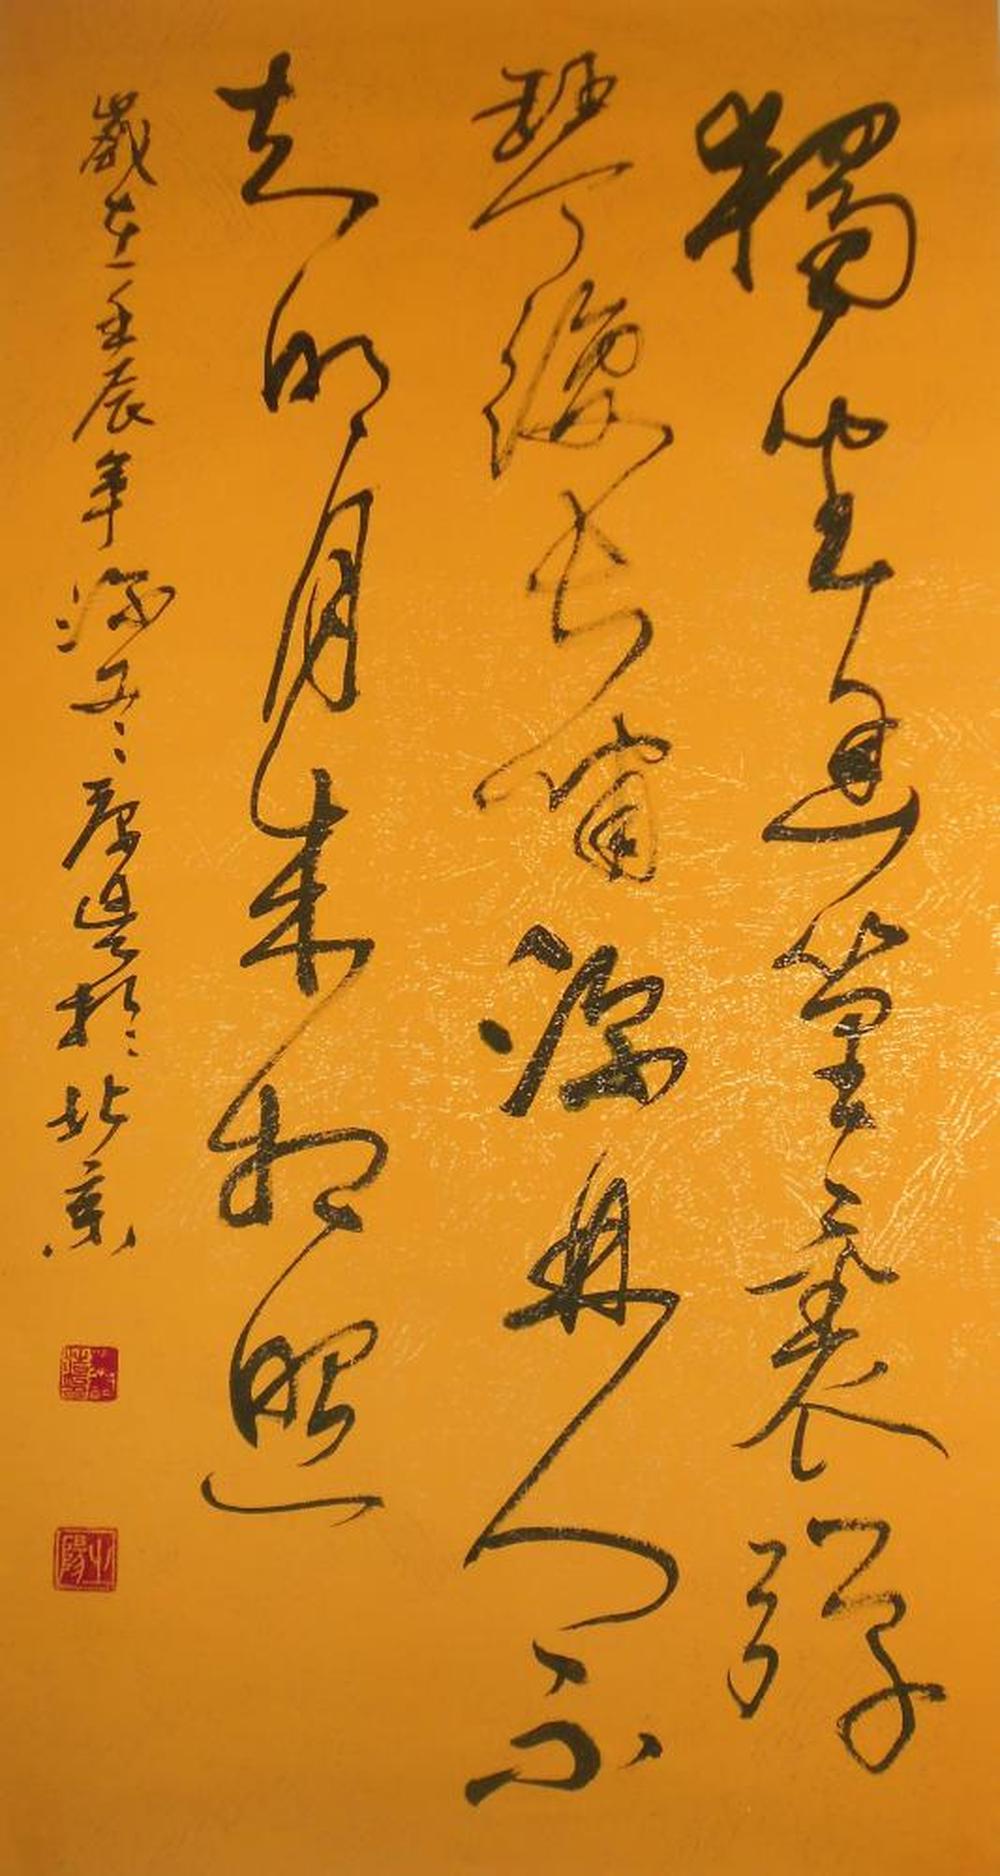 獨坐幽篁裏彈
琴復長嘯深林人不
知明月来相照
歲在壬辰年深冬於北京